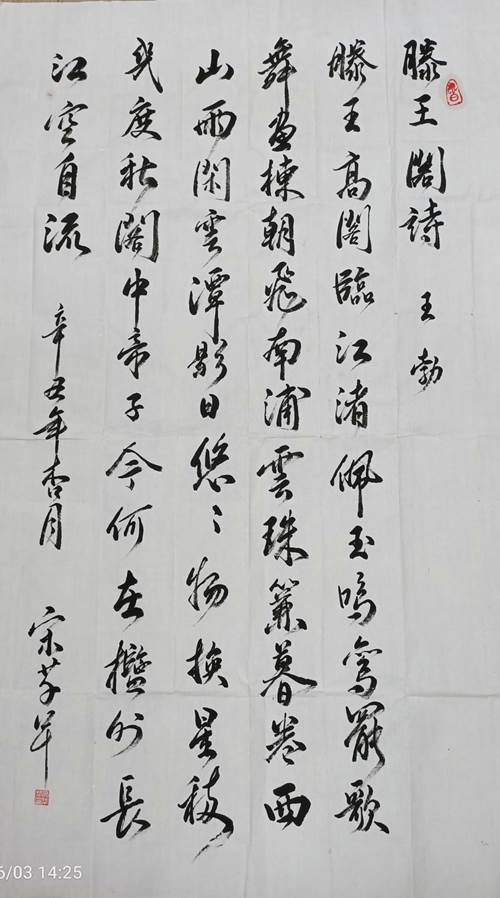 滕王閣詩 王勃
滕王高閣臨江渚佩玉鳴鸞罷歌
舞畫棟朝飛南浦雲珠簾暮卷西
山雨閑雲潭影日悠〻物換星移
幾度秋閣中帝子今何在檻外長
江空自流 辛丑年杏月 宋
6/03 14:25